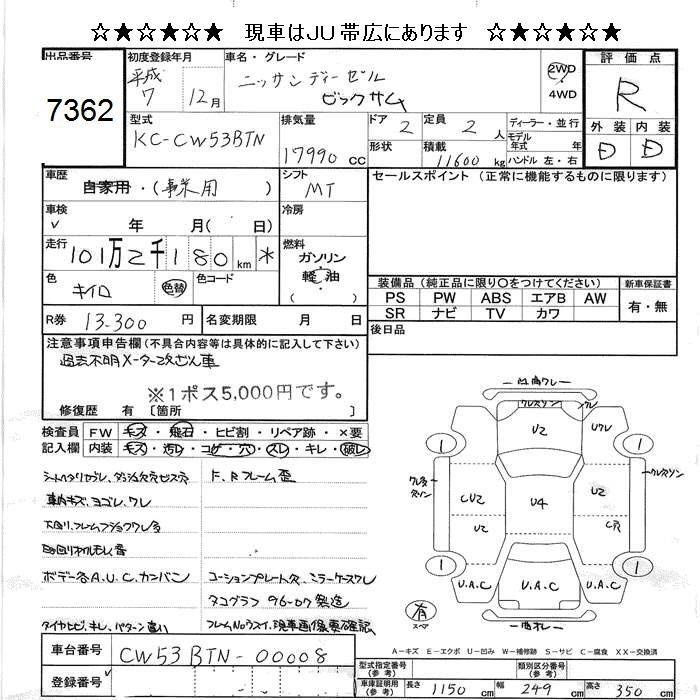 ☆★☆★☆★ 現車はJU帯広にあります ☆★☆★☆★
出品番号 初度登録年月 車名・グレード 評価点
7362 平成7 12月 ニッサンディーゼル ビックサム 2WD 4WD R
型式 排気量 ドア 定員 ディーラー・並行 外装 内装
KC-CW53BTN 17990 cc 2 2 人 モデル年式 年 D D
形状 積載 11600 kg ハンドル 左・右
車歴 シフト セールスポイント (正常に機能するものに限ります)
自家用・(事業用) MT
車検 冷房
年 月( 日)
走行 燃料
101万2千180 km * ガソリン
軽油
( )
色 色替 色コード
キイロ
装備品 (純正品に限り〇をつけてください) 新車保証書
PS PW ABS エアB AW 有・無
SR ナビ TV カワ
R券 13,300 円 名変期限 月 日
後日品
注意事項申告欄(不具合内容等は具体的に記入して下さい)
過去不明メーター改ざん車
※1ポス5,000円です。
修復歴 有 [箇所 ]
検査員 FW キズ・飛石・ヒビ割・リペア跡・×要
記入欄 内装 キズ・汚レ・コゲ・穴・スレ・キレ・破レ
F、Rフレーム歪
車内キズ、ヨゴレ、ワレ
ボデー各A.U.C、カンバン
コーションプレート欠、ミラーケースワレ
タコグラフ 96-07 製造
タイヤヒビ、キレ、パターン違い
U2 ワレ
1 1
CU2 U4 U2
U2 C穴
1 1
U.A.C U.A.C U.A.C
有
スペア
A-キズ E-エクボ U-凹み W-補修跡 S-サビ C-腐食 XX-交換済
車台番号 CW53BTN-00008
登録番号
型式指定番号 (参考) 類別区分番号 (参考)
車庫証明用 (参考) 長さ 1150 cm 幅 249 cm 高さ 350 cm